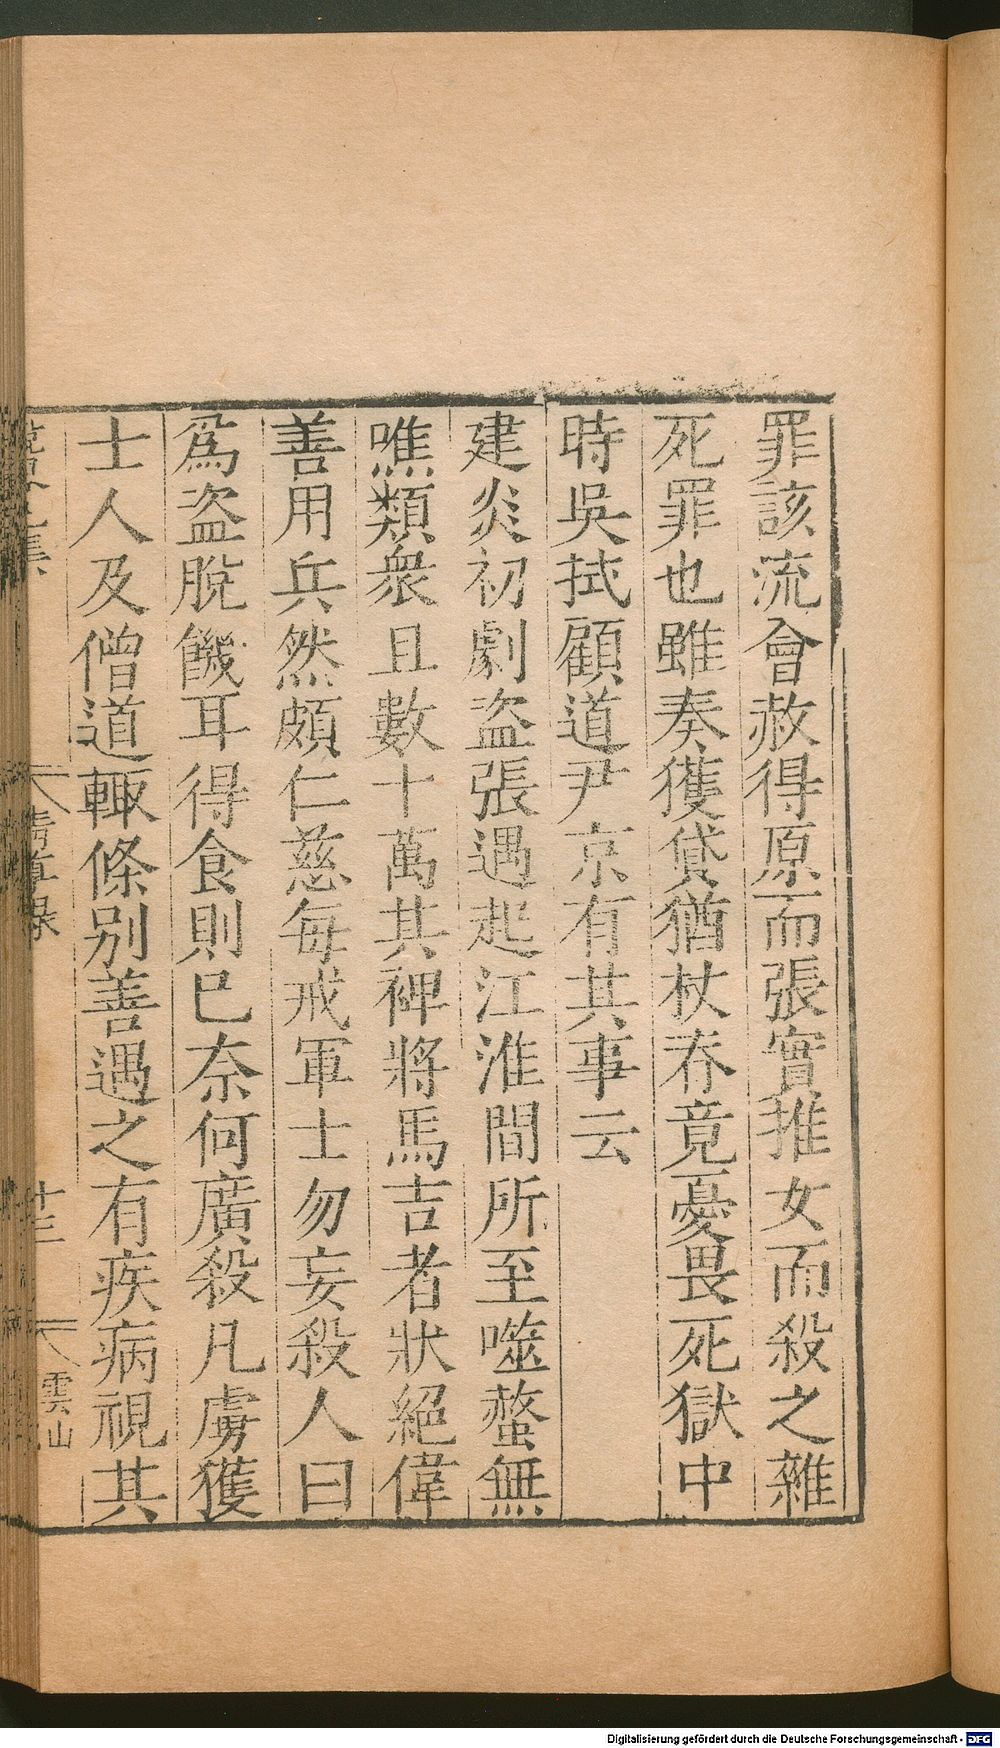 罪該流會赦得原而張實推女而殺之雜
死罪也雖奏獲貸猶杖脊竟憂畏死獄中
時吳拭顧道尹京有其事云
建炎初劇盜張遇起江淮間所至噬螫無
噍類衆且數十萬其裨將馬吉者狀絕偉
善用兵然頗仁慈每戒軍士勿妄殺人曰
爲盜脫饑耳得食則已奈何廣殺凡虜獲
士人及僧道輙條別善遇之有疾病視其
清尊錄
十三
雲山
Digitalisierung gefördert durch die Deutsche Forschungsgemeinschaft - DFG